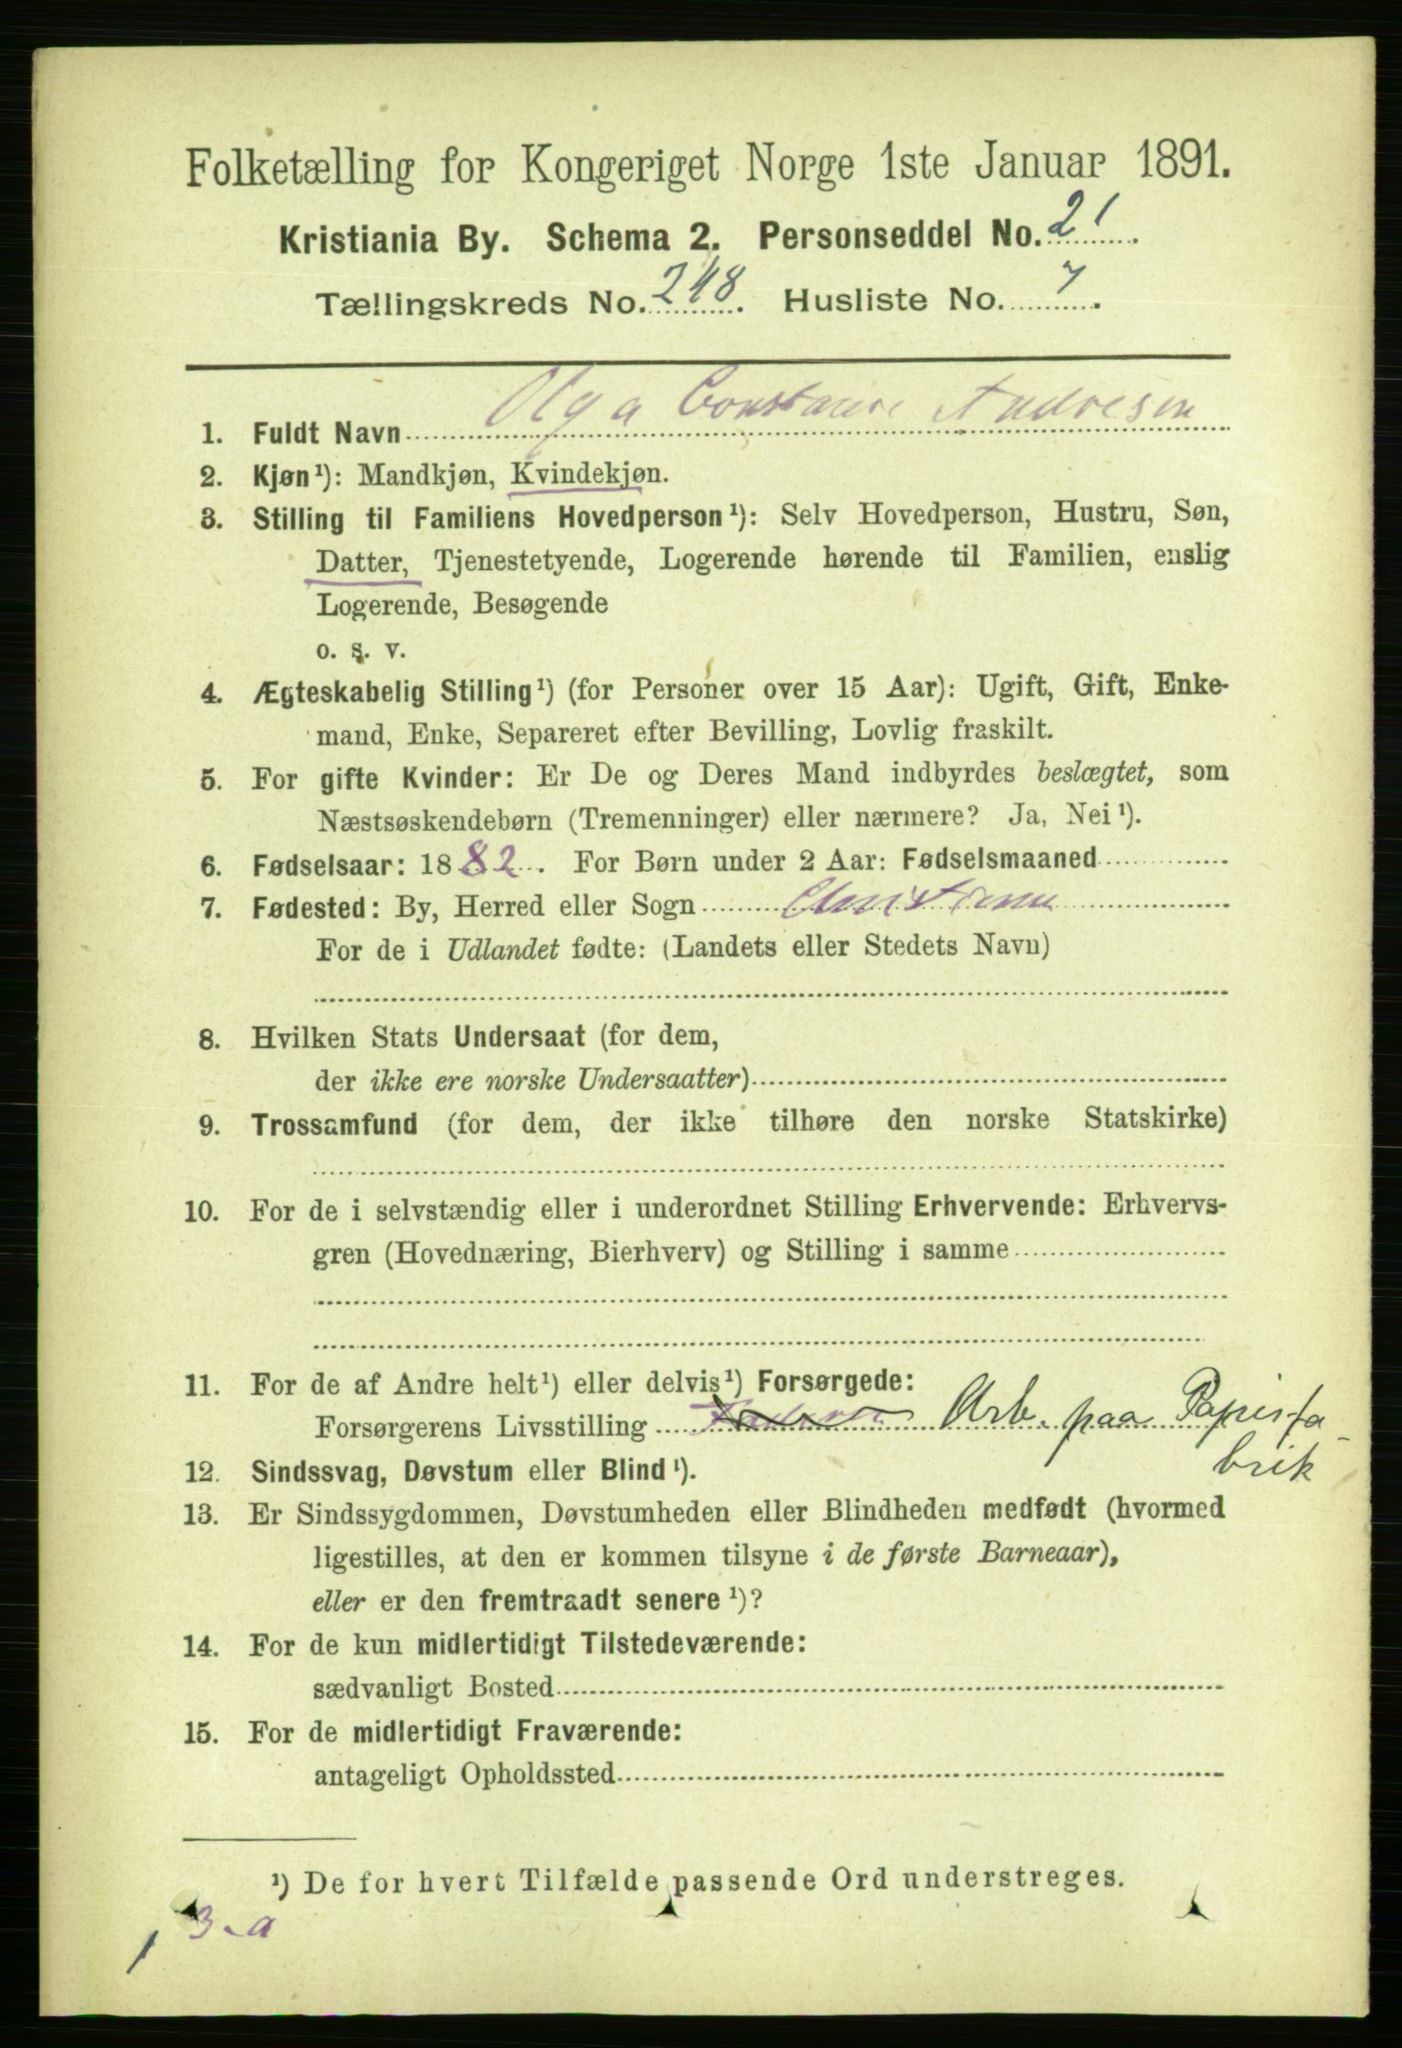 Folketælling for Kongeriget Norge 1ste Januar 1891.
Kristiania By. Schema 2. Personseddel No. 21.
Tællingskreds No. 248. Husliste No. 7.
1. Fuldt Navn Olga Constance Andresen
2. Kjøn¹): Mandkjøn, Kvindekjøn.
3. Stilling til Familiens Hovedperson¹): Selv Hovedperson, Hustru, Søn,
Datter, Tjenestetyende, Logerende hørende til Familien, enslig
Logerende, Besøgende
o. s. v.
4. Ægteskabelig Stilling¹) (for Personer over 15 Aar): Ugift, Gift, Enke-
mand, Enke, Separeret efter Bevilling, Lovlig fraskilt.
5. For gifte Kvinder: Er De og Deres Mand indbyrdes beslægtet, som
Næstsøskendebørn (Tremenninger) eller nærmere? Ja, Nei¹).
6. Fødselsaar: 1882. For Børn under 2 Aar: Fødselsmaaned
7. Fødested: By, Herred eller Sogn
For de i Udlandet fødte: (Landets eller Stedets Navn)
8. Hvilken Stats Undersaat (for dem,
der ikke ere norske Undersaatter)
9. Trossamfund (for dem, der ikke tilhøre den norske Statskirke)
10. For de i selvstændig eller i underordnet Stilling Erhvervende: Erhvervs-
gren (Hovednæring, Bierhverv) og Stilling i samme
11. For de af Andre helt¹) eller delvis¹) Forsørgede:
Forsørgerens Livsstilling Arb. paa Papirfa-
brik
12. Sindssvag, Døvstum eller Blind¹).
13. Er Sindssygdommen, Døvstumheden eller Blindheden medfødt (hvormed
ligestilles, at den er kommen tilsyne i de første Barneaar),
eller er den fremtraadt senere¹)?
14. For de kun midlertidigt Tilstedeværende:
sædvanligt Bosted
15. For de midlertidigt Fraværende:
antageligt Opholdssted
¹) De for hvert Tilfælde passende Ord understreges.
3-a
1